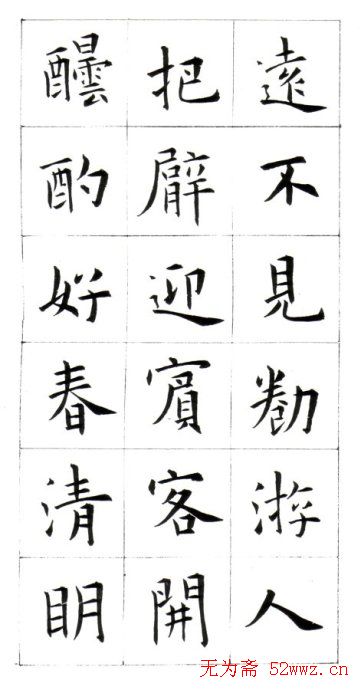 遠不見勌游人
把臂迎賓客開
酌好春清眀
无为斋 52wwz.cn